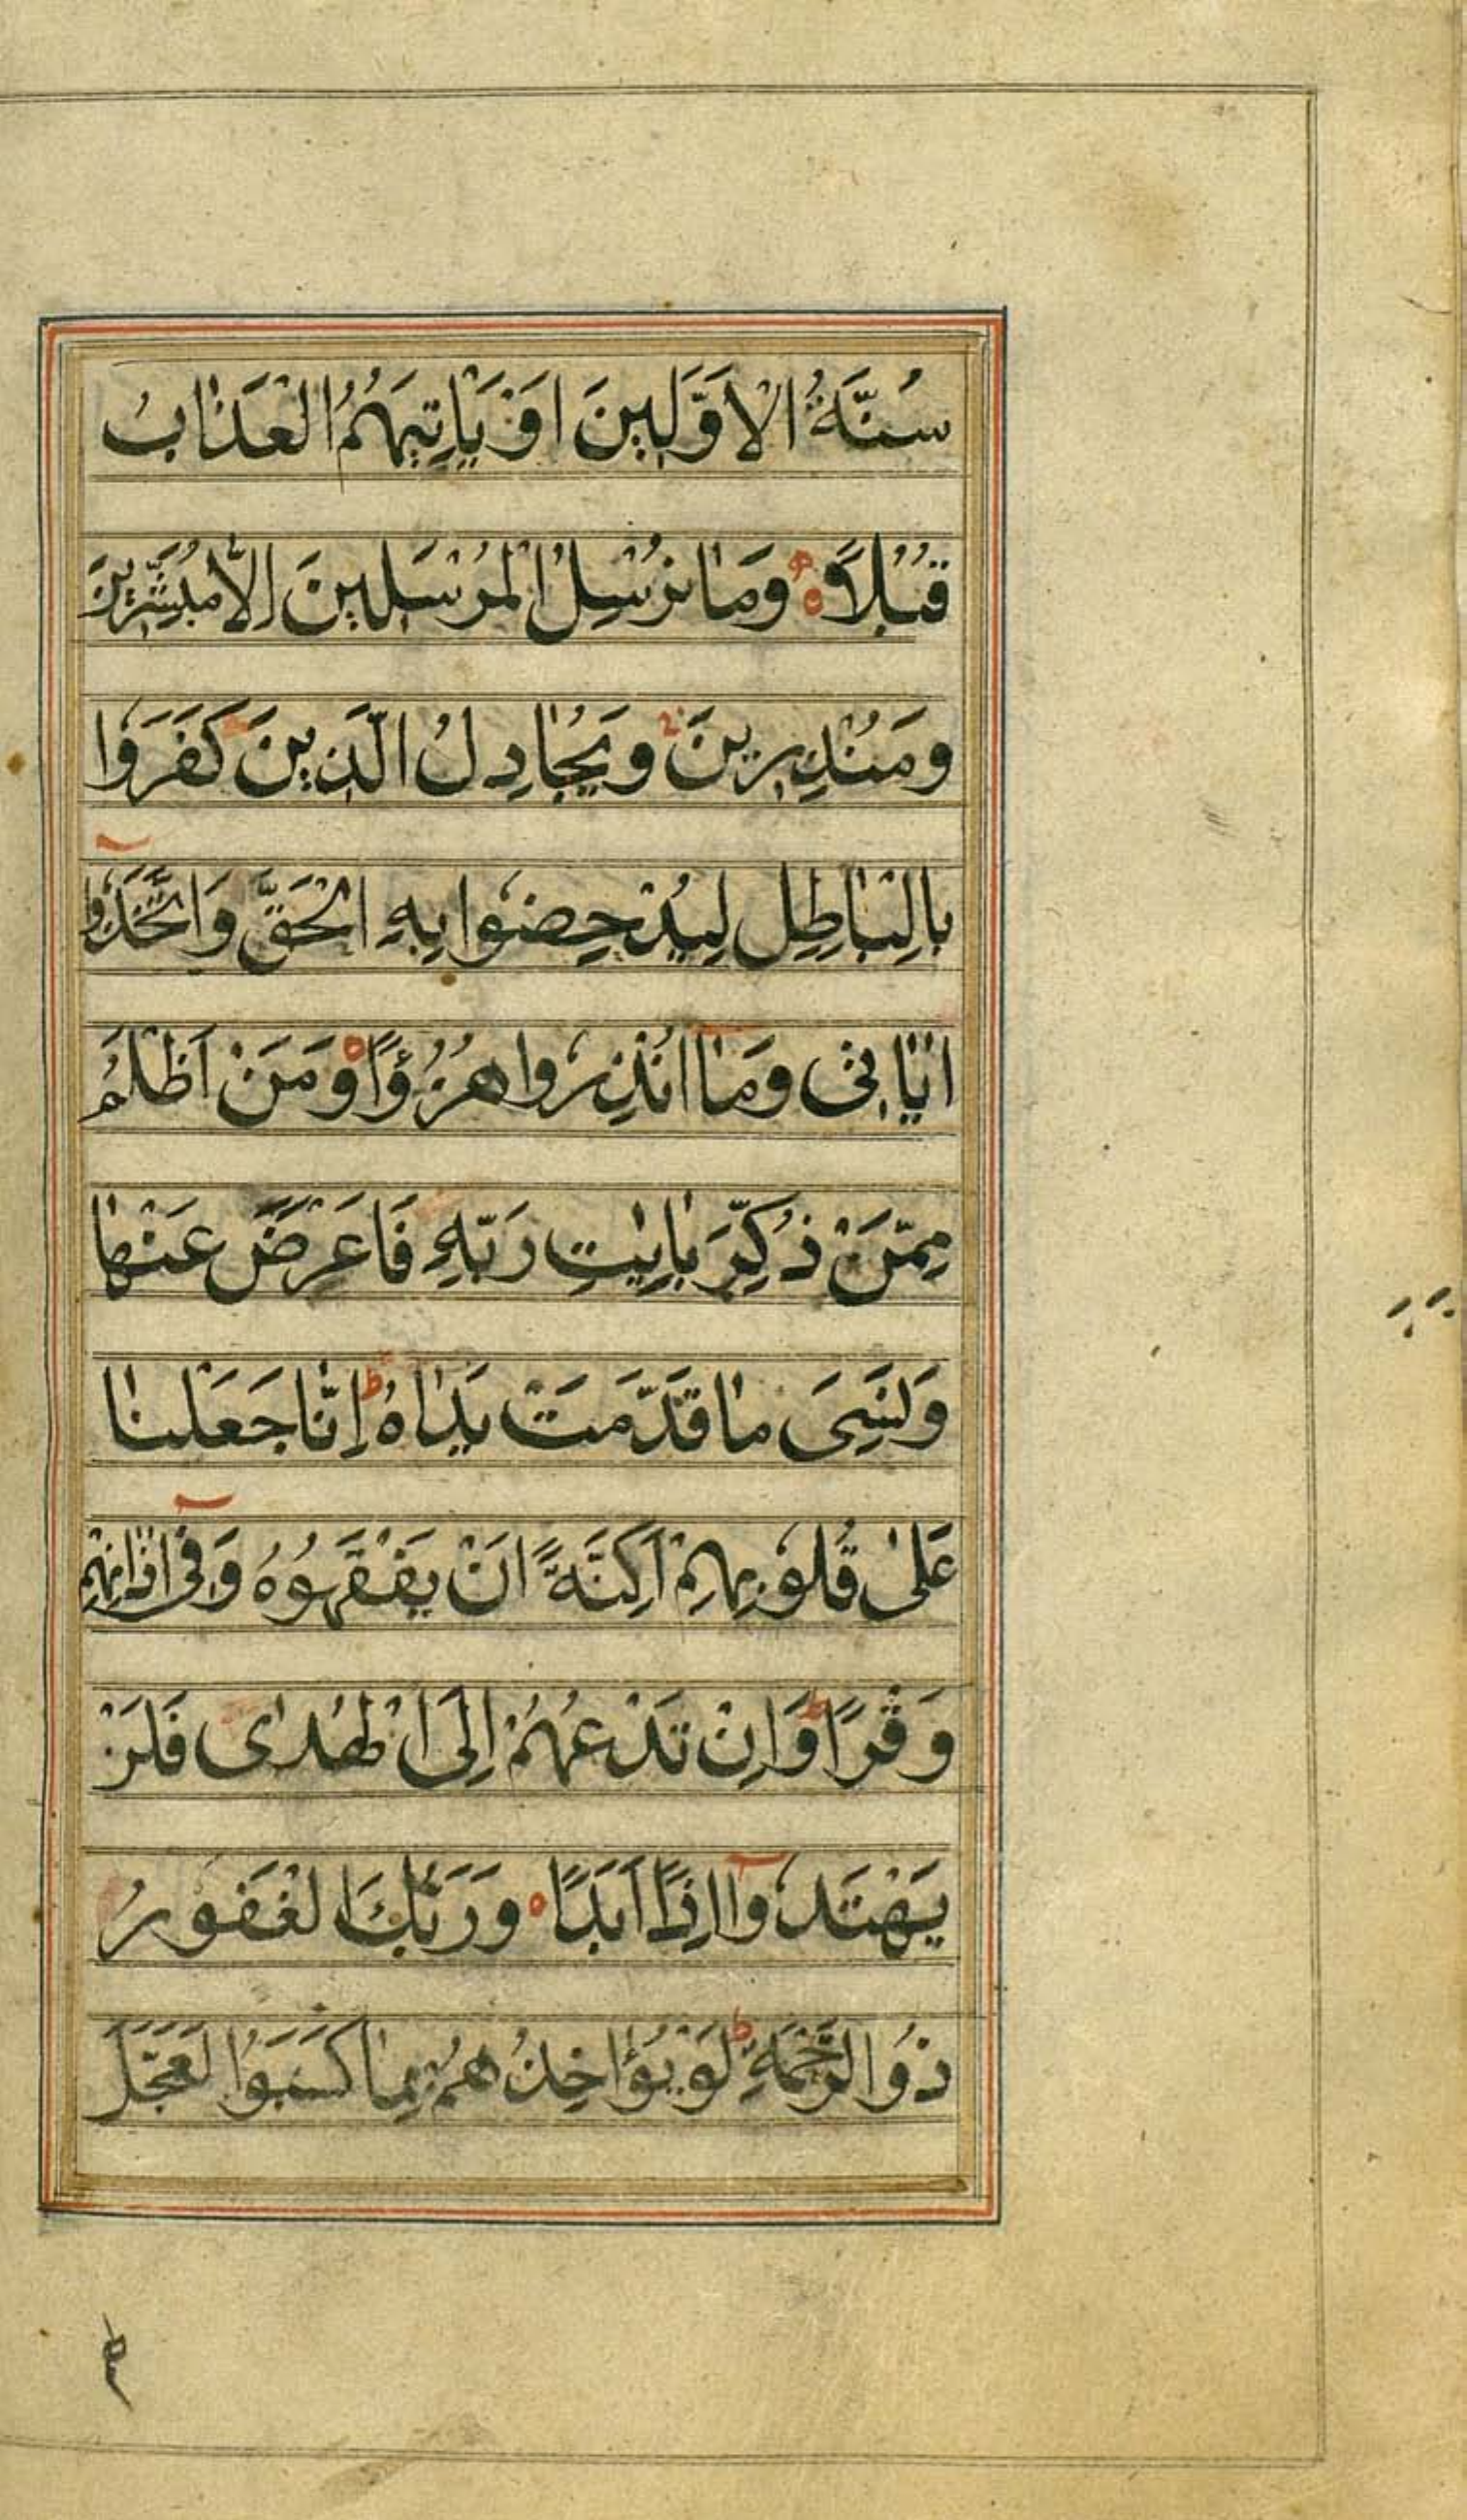 سُنَّةُ الْاَوَّلِينَ اَوْ يَاْتِيَهُمُ الْعَذَابُ
قُبُلًا ۝ وَمَا نُرْسِلُ الْمُرْسَلِينَ اِلَّا مُبَشِّرِينَ
وَمُنْذِرِينَ وَيُجَادِلُ الَّذِينَ كَفَرُوا
بِالْبَاطِلِ لِيُدْحِضُوا بِهِ الْحَقَّ وَاتَّخَذُوا
اٰيَاتِى وَمَا اُنْذِرُوا هُزُؤًا ۝ وَمَنْ اَظْلَمُ
مِمَّنْ ذُكِّرَ بِاٰيٰتِ رَبِّهِ فَاَعْرَضَ عَنْهَا
وَنَسِىَ مَا قَدَّمَتْ يَدَاهُ ط اِنَّا جَعَلْنَا
عَلٰى قُلُوبِهِمْ اَكِنَّةً اَنْ يَفْقَهُوهُ وَفِى اٰذَانِهِمْ
وَقْرًا ط وَاِنْ تَدْعُهُمْ اِلَى الْهُدٰى فَلَنْ
يَهْتَدُوا اِذًا اَبَدًا ۝ وَرَبُّكَ الْغَفُورُ
ذُو الرَّحْمَةِ ط لَوْ يُؤَاخِذُهُمْ بِمَا كَسَبُوا لَعَجَّلَ